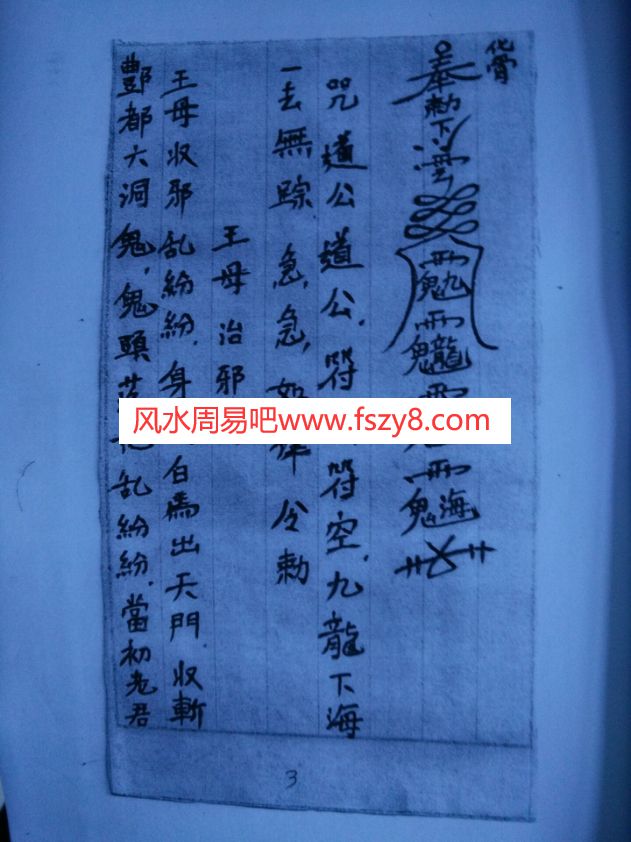 化骨
奉勅下
咒道公道公,符符空,九龍下海
一去無踪 急,急,如律令勅
王母治邪
王母収邪乱紛紛,身白馬出天門収斬
酆都六洞鬼,鬼頭乱紛紛,當初老君
风水周易吧www.fszy8.com
3